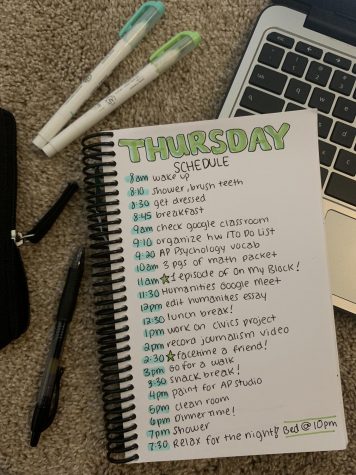 THURSDAY
SCHEDULE
8am wake up
8:10 shower, brush teeth
8:30 get dressed
8:45 breakfast
9am check google classroom
9:10 organize hw /To Do List
9:20 AP Psychology vocab
10am 3 pgs of math packet
11am ☆ 1 episode of On My Block!
11:30 Humanities Google Meet
12pm edit humanities essay
12:30 lunch break!
1pm work on civics project
2pm record journalism video
2:30 ☆ facetime a friend!
3pm go for a walk
3:30 snack break!
4pm paint for AP Studio
5pm clean room
6pm Dinner time!
7pm shower
7:30 Relax for the night! Bed @ 10pm